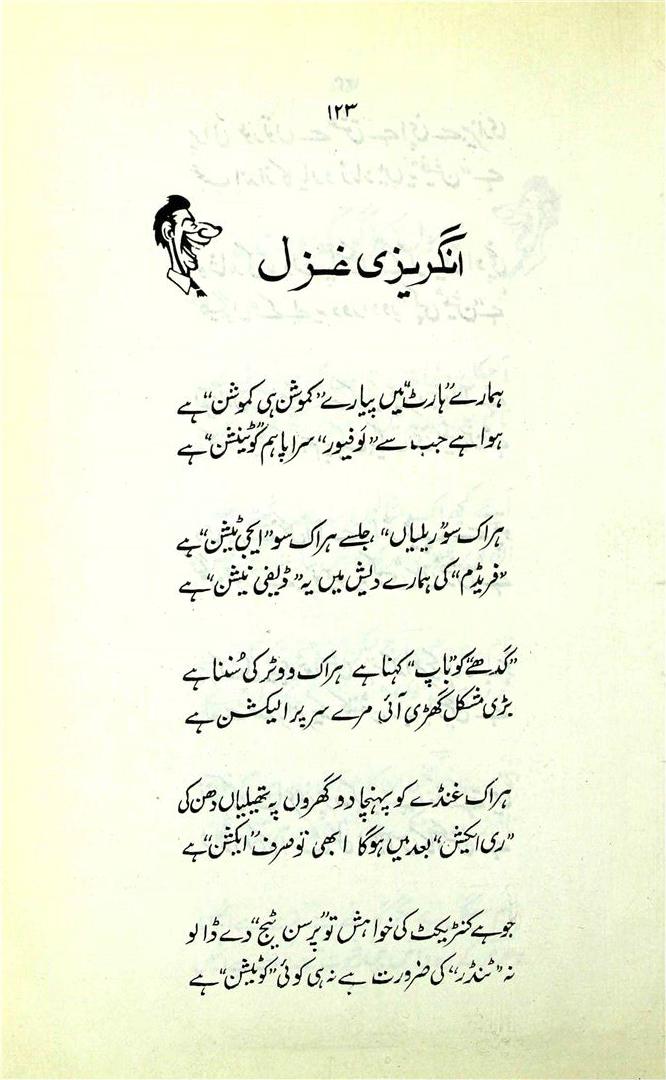 ۱۲۳
انگریزی غزل
ہمارے "ہارٹ" میں پیارے "کموشن ہی کموشن" ہے
ہوا ہے جب سے "لَو فیور" سراپا ہم "کوٹینشن" ہے
ہر اک سو "ریلیاں"، جلسے ہر اک سو "ایجی ٹیشن" ہے
"فریڈم" کی ہمارے دیش میں یہ "ڈیفی نیشن" ہے
"گدھے" کو "باپ" کہنا ہے ہر اک ووٹر کی سُننا ہے
بڑی مشکل گھڑی آئی مرے سر پر الیکشن ہے
ہر اک غنڈے کو پہنچا دو گھروں پہ تھیلیاں دھن کی
"ری ایکشن" بعد میں ہوگا ابھی تو صرف "ایکشن" ہے
جو ہے کنٹریکٹ کی خواہش تو "پرسن ٹیج" دے ڈالو
نہ "ٹنڈر" کی ضرورت ہے نہ ہی کوئی "کوٹیشن" ہے